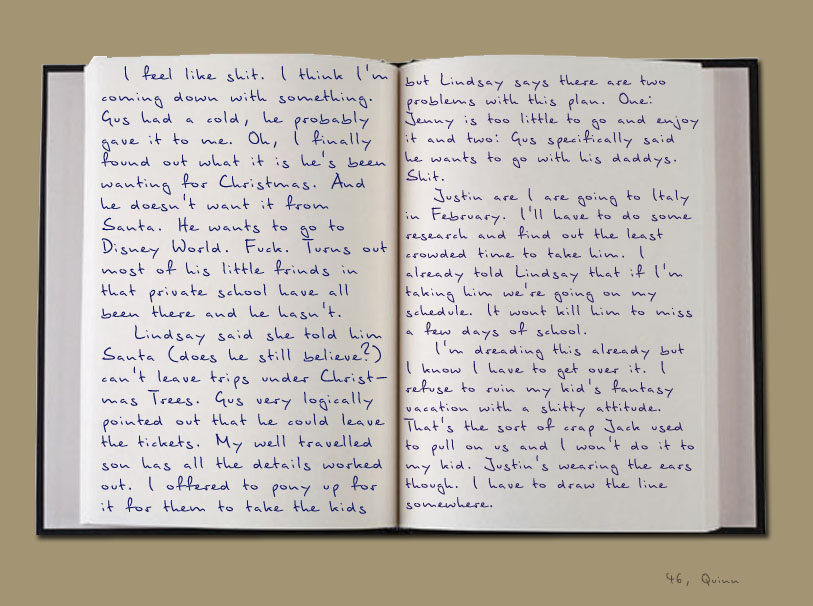 I feel like shit. I think I'm
coming down with something.
Gus had a cold, he probably
gave it to me. Oh, I finally
found out what it is he's been
wanting for Christmas. And
he doesn't want it from
Santa. He wants to go to
Disney World. Fuck. Turns out
most of his little frinds in
that private school have all
been there and he hasn't.
Lindsay said she told him
Santa (does he still believe?)
can't leave trips under Christ-
mas Trees. Gus very logically
pointed out that he could leave
the tickets. My well travelled
son has all the details worked
out. I offered to pony up for
it for them to take the kids
but Lindsay says there are two
problems with this plan. One:
Jenny is too little to go and enjoy
it and two: Gus specifically said
he wants to go with his daddys.
Shit.
Justin are I are going to Italy
in February. I'll have to do some
research and find out the least
crowded time to take him. I
already told Lindsay that if I'm
taking him we're going on my
schedule. It wont kill him to miss
a few days of school.
I'm dreading this already but
I know I have to get over it. I
refuse to ruin my kid's fantasy
vacation with a shitty attitude.
That's the sort of crap Jack used
to pull on us and I won't do it to
my kid. Justin's wearing the ears
though. I have to draw the line
somewhere.
46, Quinn